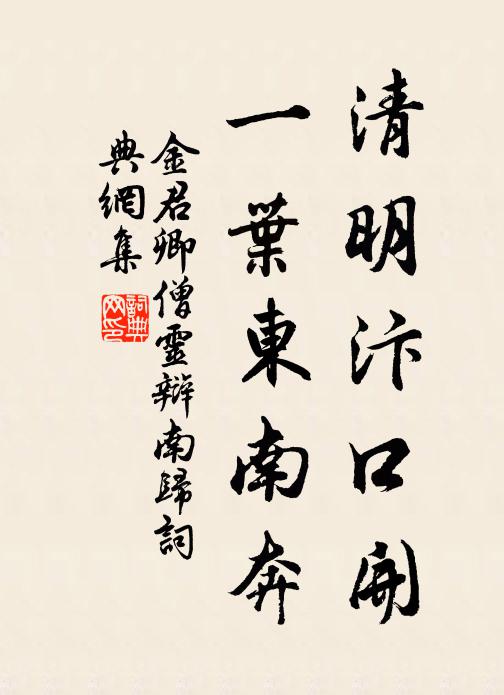 清明汴口開
一葉東南奔
金君卿僧靈辯南歸詞
典網集
詞典網印